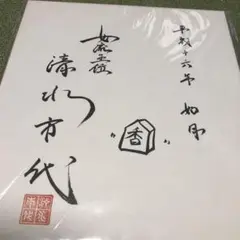 平成十六年 如月
"香"
女流王位
清水市代